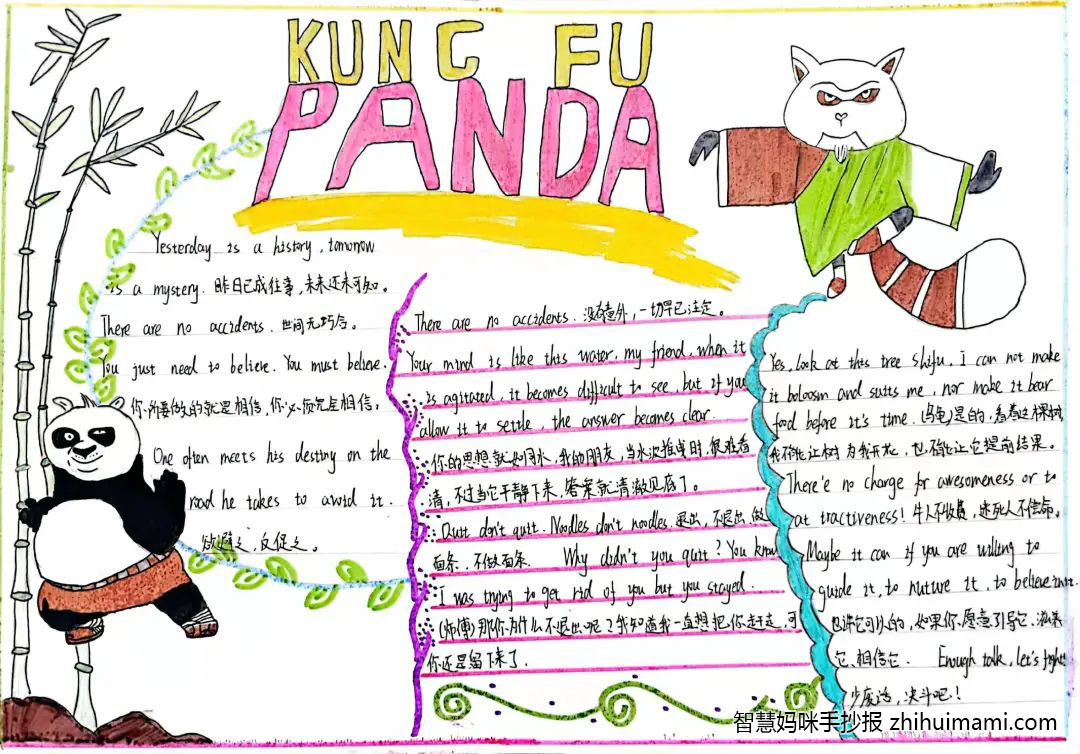 KUNG FU
PANDA
Yesterday is a history, tomorrow
is a mystery. 昨日已成往事,未来还未可知。
There are no accidents. 世间无巧合。
You just need to believe. You must believe.
你所要做的就是相信,你必须完全相信。
One often meets his destiny on the
road he takes to avoid it.
欲避之,反促之。
There are no accidents. 没有意外,一切早已注定。
Your mind is like this water, my friend, when it
is agitated, it becomes difficult to see, but if you
allow it to settle, the answer becomes clear.
你的思想就如同水,我的朋友,当水波摇曳时,很难看
清,不过当它平静下来,答案就清澈见底了。
Quit don't quit. Noodles don't noodles. 退出,不退出,做
面条,不做面条. Why didn't you quit? You know
I was trying to get rid of you but you stayed.
(师傅)那你为什么不退出呢?我知道我一直想把你赶走,可
你还是留下来了.
Yes, look at this tree Shifu. I can not make
it boloosm and suits me, nor make it bear
food before it's time. (乌龟)是的,看着这棵树,
我不能让树为我开花,也不能让它提前结果。
There'e no charge for awesomeness or to
at tractiveness! 牛人不收费,迷死人不偿命。
Maybe it can if you are willing to
guide it, to nuture it, to believe in it.
也许它可以的,如果你愿意引导它、滋养
它、相信它. Enough talk, let's fight!
少废话,决斗吧!
智慧妈咪手抄报 zhihuimami.com